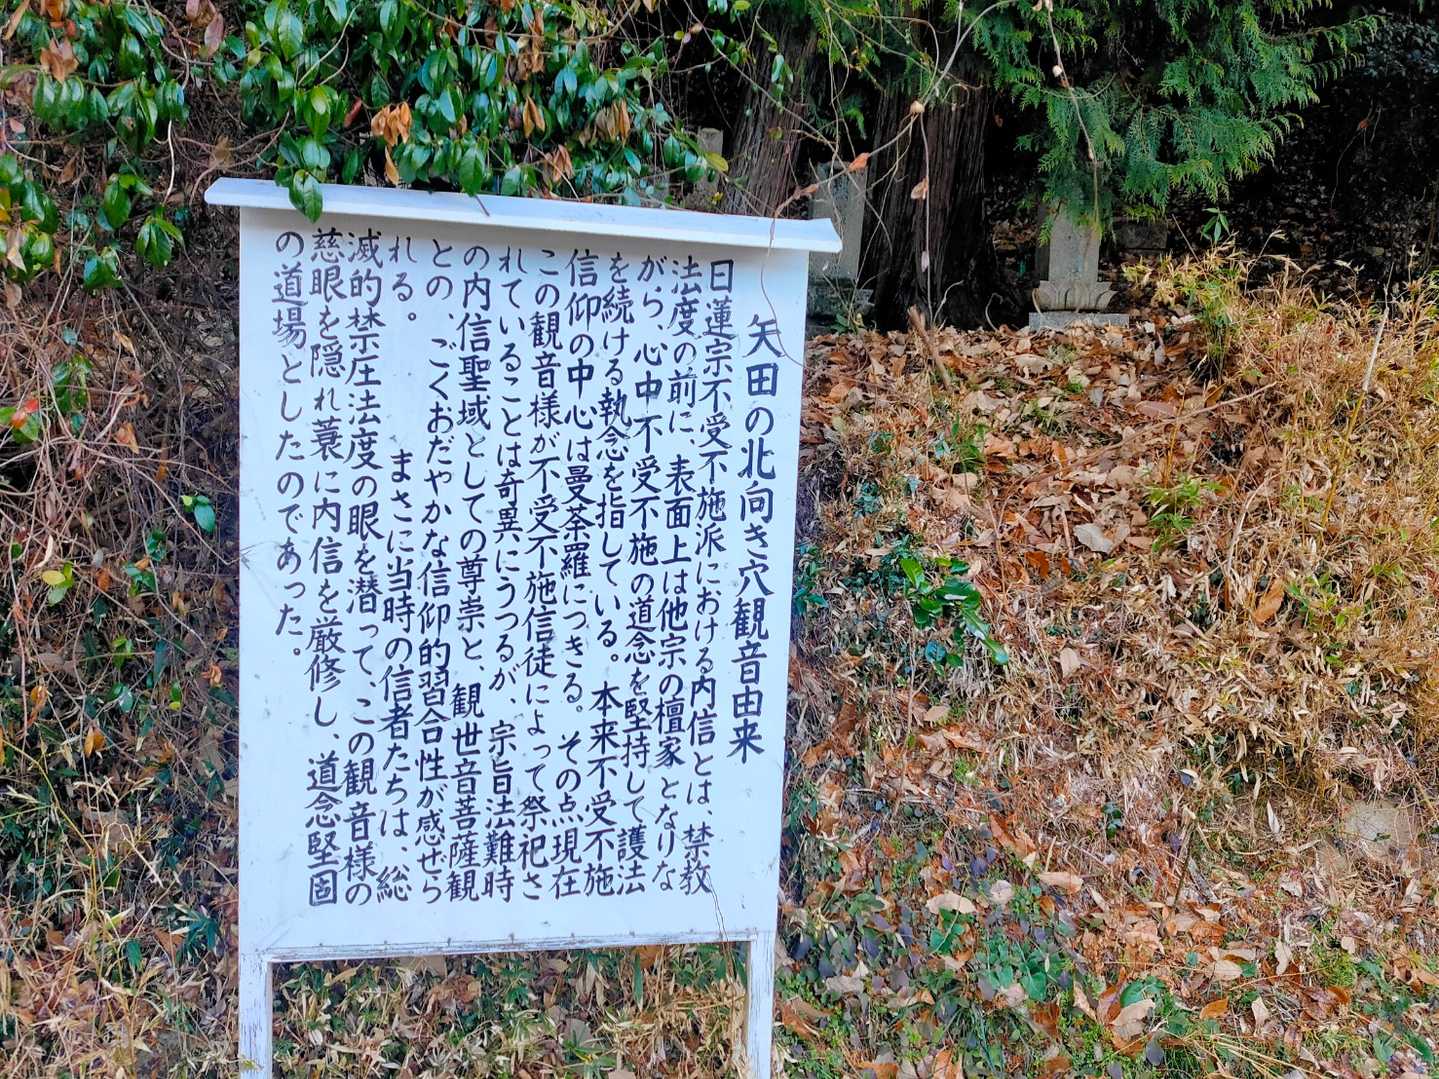 矢田の北向き穴観音由来
日蓮宗不受不施派における内信とは、禁教
法度の前に、表面上は他宗の檀家となりな
がら、心中不受不施の道念を堅持して護法
を続ける執念を指している。本来不受不施
信仰の中心は曼荼羅につきる。その点現在
この観音様が不受不施信徒によって祭祀さ
れていることは奇異にうつるが、宗旨法難時
の内信聖域としての尊崇と、観世音菩薩観
との、ごくおだやかな信仰的習合性が感ぜら
れる。 まさに当時の信者たちは、総
滅的禁圧法度の眼を潜って、この観音様の
慈眼を隠れ蓑に内信を厳修し、道念堅固
の道場としたのであった。